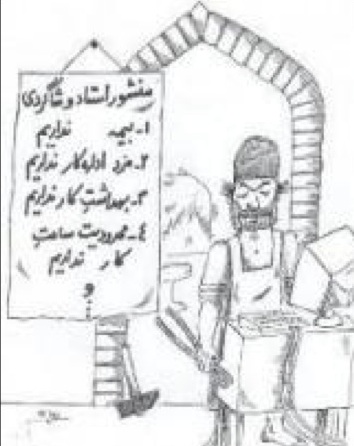 منشور استاد و شاگردی
۱- بیمه نداریم
۲- مزد اداره کار نداریم
۳- بهداشت کار نداریم
۴- محدودیت ساعت
کار نداریم
و